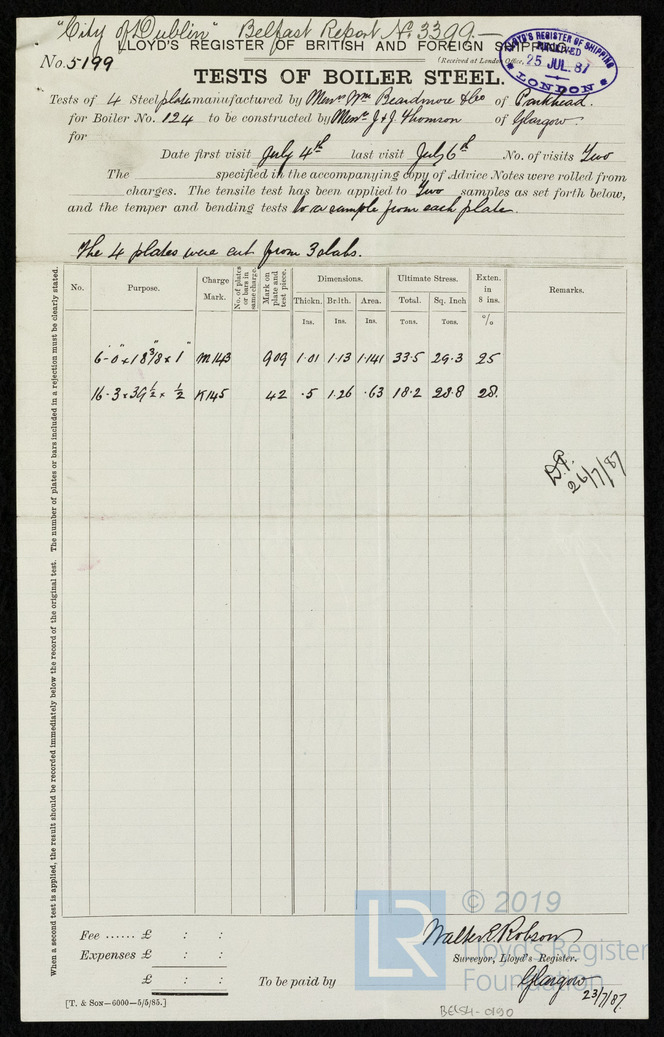 "City of Dublin" Belfast Report No. 3399.—
LLOYD'S REGISTER OF BRITISH AND FOREIGN SHIPPING.
LLOYD'S REGISTER OF SHIPPING
RECEIVED
25 JUL. 87
LONDON
No. 5199
(Received at London Office,
TESTS OF BOILER STEEL.
Tests of 4 Steel plates manufactured by Messrs Wm Beardmore & Co of Parkhead.
for Boiler No. 124 to be constructed by Messrs J & J Thomson of Glasgow.
for
Date first visit July 4th last visit July 6th No. of visits Two
The specified in the accompanying copy of Advice Notes were rolled from
charges. The tensile test has been applied to Two samples as set forth below,
and the temper and bending tests to a sample from each plate.
The 4 plates were cut from 3 slabs.
No. Purpose. Charge Mark. No. of plates or bars in same charge. Mark on plate and test piece. Dimensions. Ultimate Stress. Exten. in 8 ins. Remarks.
Thickn. Br'lth. Area. Total. Sq. Inch
Ins. Ins. Ins. Tons. Tons. %
6-0" x 18 3/8 x 1" M143 909 1.01 1.13 1.141 33.5 29.3 25
16-3 x 39 1/2 x 1/2 K145 42 .5 1.26 .63 18.2 28.8 28.
D.P.
26/7/87
When a second test is applied, the result should be recorded immediately below the record of the original test. The number of plates or bars included in a rejection must be clearly stated.
Fee ...... £ : :
Expenses £ : :
£ : :
To be paid by
Walter E. Robson
Surveyor, Lloyd's Register.
Glasgow
23/7/87.
[T. & Son—6000—5/5/85.]
BEL54-0190
LR
© 2019
Lloyd's Register
Foundation